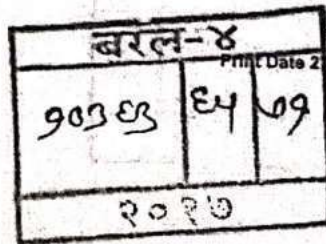 बरल-४
Print Date 2
१०३६३ ६५ ७१
२०१७